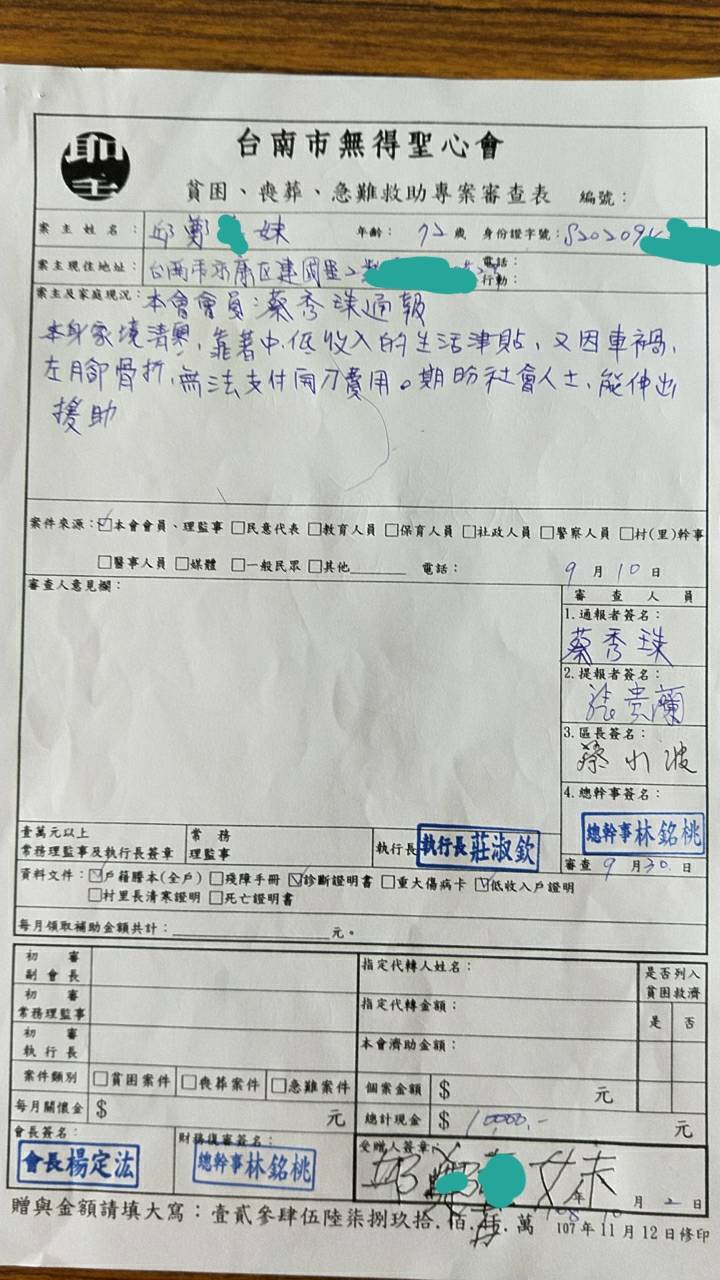 聖
台南市無得聖心會
貧困、喪葬、急難救助專案審查表 編號：
案主姓名： 邱鄭 妹 年齡： 72 歲 身份證字號： S20209
案主現住地址： 台南市永康區建國里2 電話：
行動：
案主及家庭現況： 本會會員：蔡秀珠通報
本身家境清寒，靠著中低收入的生活津貼，又因車禍，
左腳骨折，無法支付開刀費用。期盼社會人士，能伸出
援助
案件來源：☑本會會員、理監事 □民意代表 □教育人員 □保育人員 □社政人員 □警察人員 □村(里)幹事
□醫事人員 □媒體 □一般民眾 □其他______ 電話： 9 月 10 日
審查人意見欄：
審查人員
1.通報者簽名：
蔡秀珠
2.提報者簽名：
張貴蘭
3.區長簽名：
蔡水波
4.總幹事簽名：
總幹事林銘桃
壹萬元以上
常務理監事及執行長簽章
常務
理監事
執行長 執行長莊淑欽
審查 9 月 30 日
資料文件：☑戶籍謄本(全戶) □殘障手冊 ☑診斷證明書 □重大傷病卡 ☑低收入戶證明
□村里長清寒證明 □死亡證明書
每月領取補助金額共計：______________元。
初審
副會長
指定代轉人姓名：
是否列入
貧困救濟
初審
常務理監事
指定代轉金額：
是 否
初審
執行長
本會濟助金額：
案件類別 □貧困案件 □喪葬案件 □急難案件 個案金額 $ 元
每月關懷金 $ 元 總計現金 $ 10000.- 元
會長簽名：
會長楊定法
財務復審簽名：
總幹事林銘桃
受贈人簽章：
邱鄭 妹
108 年 10 月 2 日
贈與金額請填大寫：壹貳參肆伍陸柒捌玖拾.佰.仟.萬 107年11月12日修印